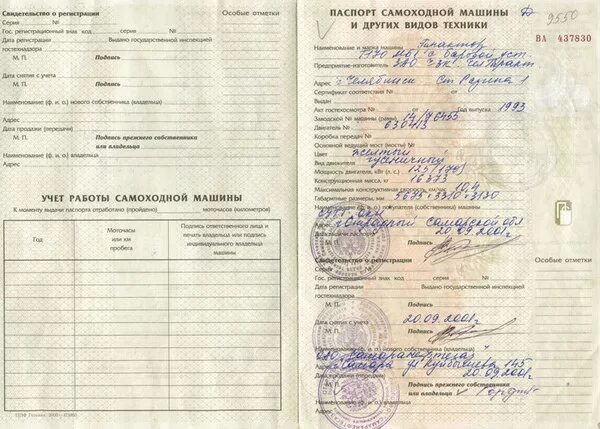 Свидетельство о регистрации Особые отметки
Серия №
Гос. регистрационный знак код серия №
Дата регистрации Выдано государственной инспекцией
гостехнадзора
М. П. Подпись
Дата снятия с учета
М. П. Подпись
Наименование (ф. и. о.) нового собственника (владельца)
Адрес
Дата продажи (передачи)
М. П. Подпись прежнего собственника
или владельца
Наименование (ф. и. о.) владельца
Адрес
УЧЕТ РАБОТЫ САМОХОДНОЙ МАШИНЫ
К моменту выдачи паспорта отработано (пройдено) моточасов (километров)
Год
Моточасы
или км
пробега
Подпись ответственного лица и
печать владельца или подпись
индивидуального владельца
машины
ПАСПОРТ САМОХОДНОЙ МАШИНЫ
И ДРУГИХ ВИДОВ ТЕХНИКИ
9550
ВА 437830
Наименование и марка машины Трактор
Предприятие-изготовитель
Адрес г. Челябинск
Сертификат соответствия №
Выдан
Акт гостехосмотра № Год выпуска 1993
Заводской № машины (рамы)
Двигатель № 630413
Коробка передач №
Основной ведущий мост (мосты) №
Цвет желтый
Вид движителя гусеничный
Мощность двигателя, кВт (л. с.)
Конструкционная масса, кг
Максимальная конструктивная скорость, км/ч 10,4
Габаритные размеры, мм
Наименование (ф. и. о.) покупателя (собственника) машины
Адрес г. Отрадный Самарской обл
20.09.2001
М. П. Подпись
Свидетельство о регистрации Особые отметки
Серия №
Гос. регистрационный знак код серия №
Дата регистрации Выдано государственной инспекцией
гостехнадзора
М. П. Подпись
Дата снятия с учета 20.09.2001г
М. П. Подпись
Наименование (ф. и. о.) нового собственника (владельца)
Адрес г. Самара ул Куйбышева 145
Дата продажи (передачи) 20.09.2001г
М. П. Подпись прежнего собственника
или владельца
Наименование (ф. и. о.) владельца
Адрес